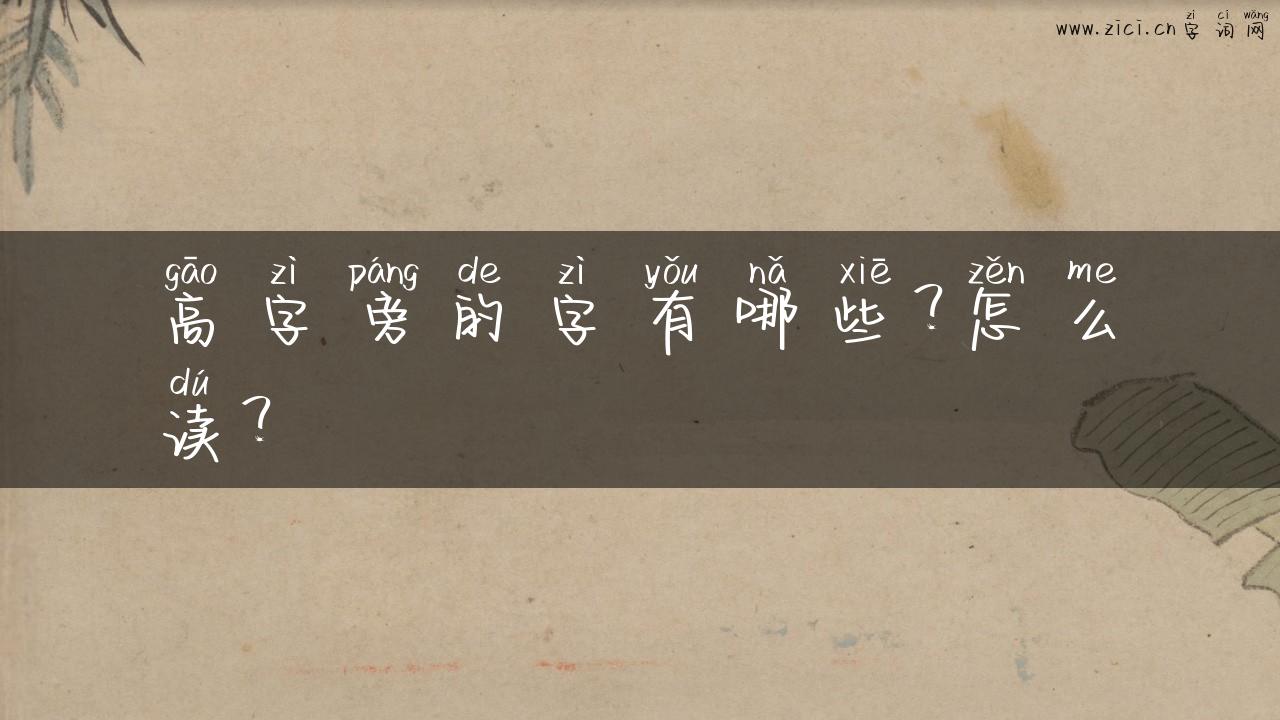 zì cí wǎng
www.zici.cn 字 词 网
gāo zì páng de zì yǒu nǎ xiē zěn me
高 字 旁 的 字 有 哪 些 ? 怎 么
dú
读 ?